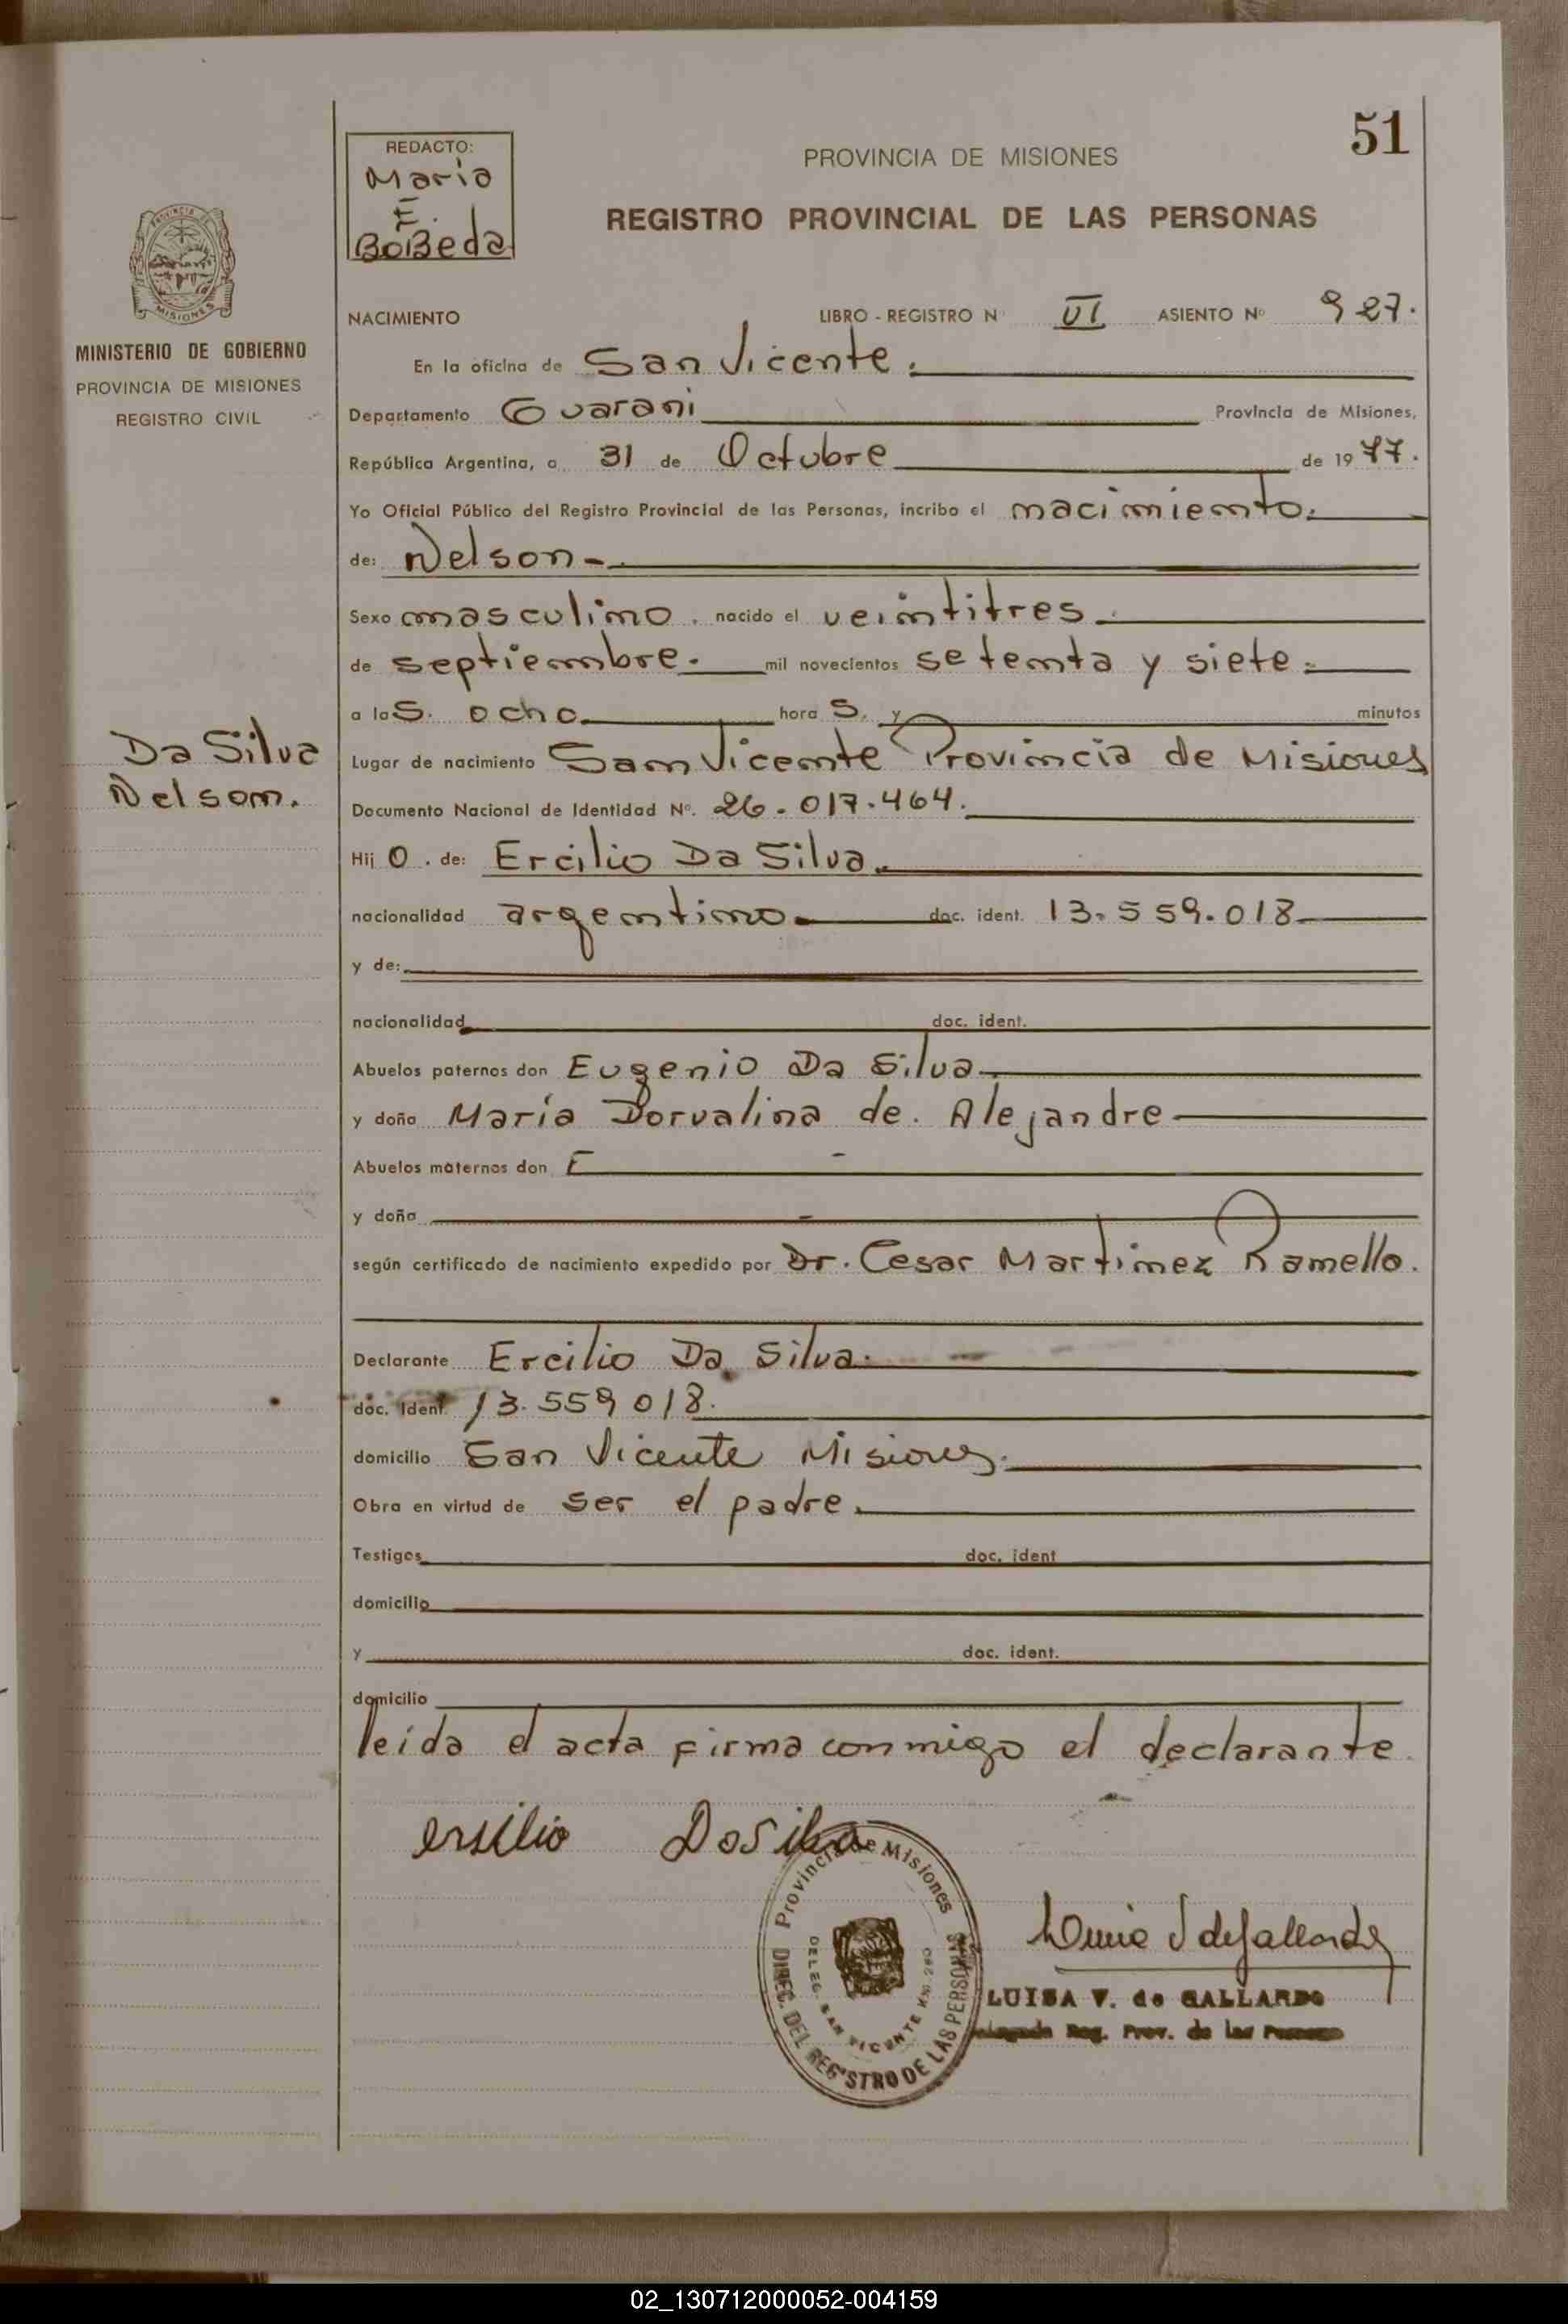 51
REDACTO:
Maria
E.
BoBeda
PROVINCIA DE MISIONES
REGISTRO PROVINCIAL DE LAS PERSONAS
PROVINCIA DE
MISIONES
MINISTERIO DE GOBIERNO
PROVINCIA DE MISIONES
REGISTRO CIVIL
Da Silva
Nelsom.
NACIMIENTO LIBRO - REGISTRO Nº VI ASIENTO Nº 927.
En la oficina de San Vicente.
Departamento Guarani Provincia de Misiones,
República Argentina, a 31 de Octubre de 1977.
Yo Oficial Público del Registro Provincial de las Personas, incribo el macimiemto.
de: Nelson-
Sexo masculimo. nacido el veimtitres.
de septiembre. mil novecientos setemta y siete.
a las. ocho hora s. y minutos
Lugar de nacimiento Sam Vicemte Provimcia de Misiones
Documento Nacional de Identidad Nº. 26.017.464.
Hij o. de: Ercilio Da Silva.
nacionalidad argemtimo doc. ident. 13.559.018
y de:
nacionalidad doc. ident.
Abuelos paternos don Eugenio Da Silva
y doña María Dorvalina de. Alejandre
Abuelos maternos don E
y doña
según certificado de nacimiento expedido por Dr. Cesar Martimez Ramello.
Declarante Ercilio Da Silva.
doc. Ident. 13.559018.
domicilio San Vicente Misiones.
Obra en virtud de ser el padre.
Testigos doc. ident
domicilio
y doc. ident.
domicilio
leída el acta firma conmigo el declarante.
ersilio DaSilva
Provincia de Misiones
DIREC. DEL REGISTRO DE LAS PERSONAS
DELEG. SAN VICENTE
LUISA V. de GALLARDO
Reg. Prov. de las Personas
02_130712000052-004159